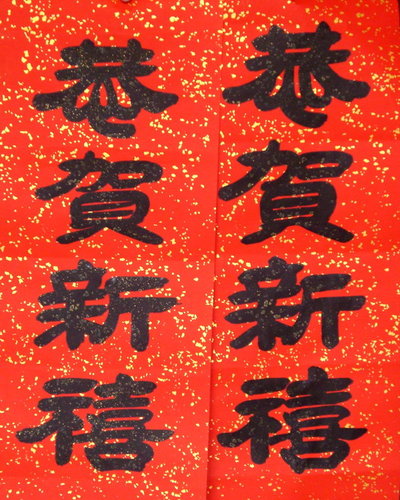 恭賀新禧
恭賀新禧